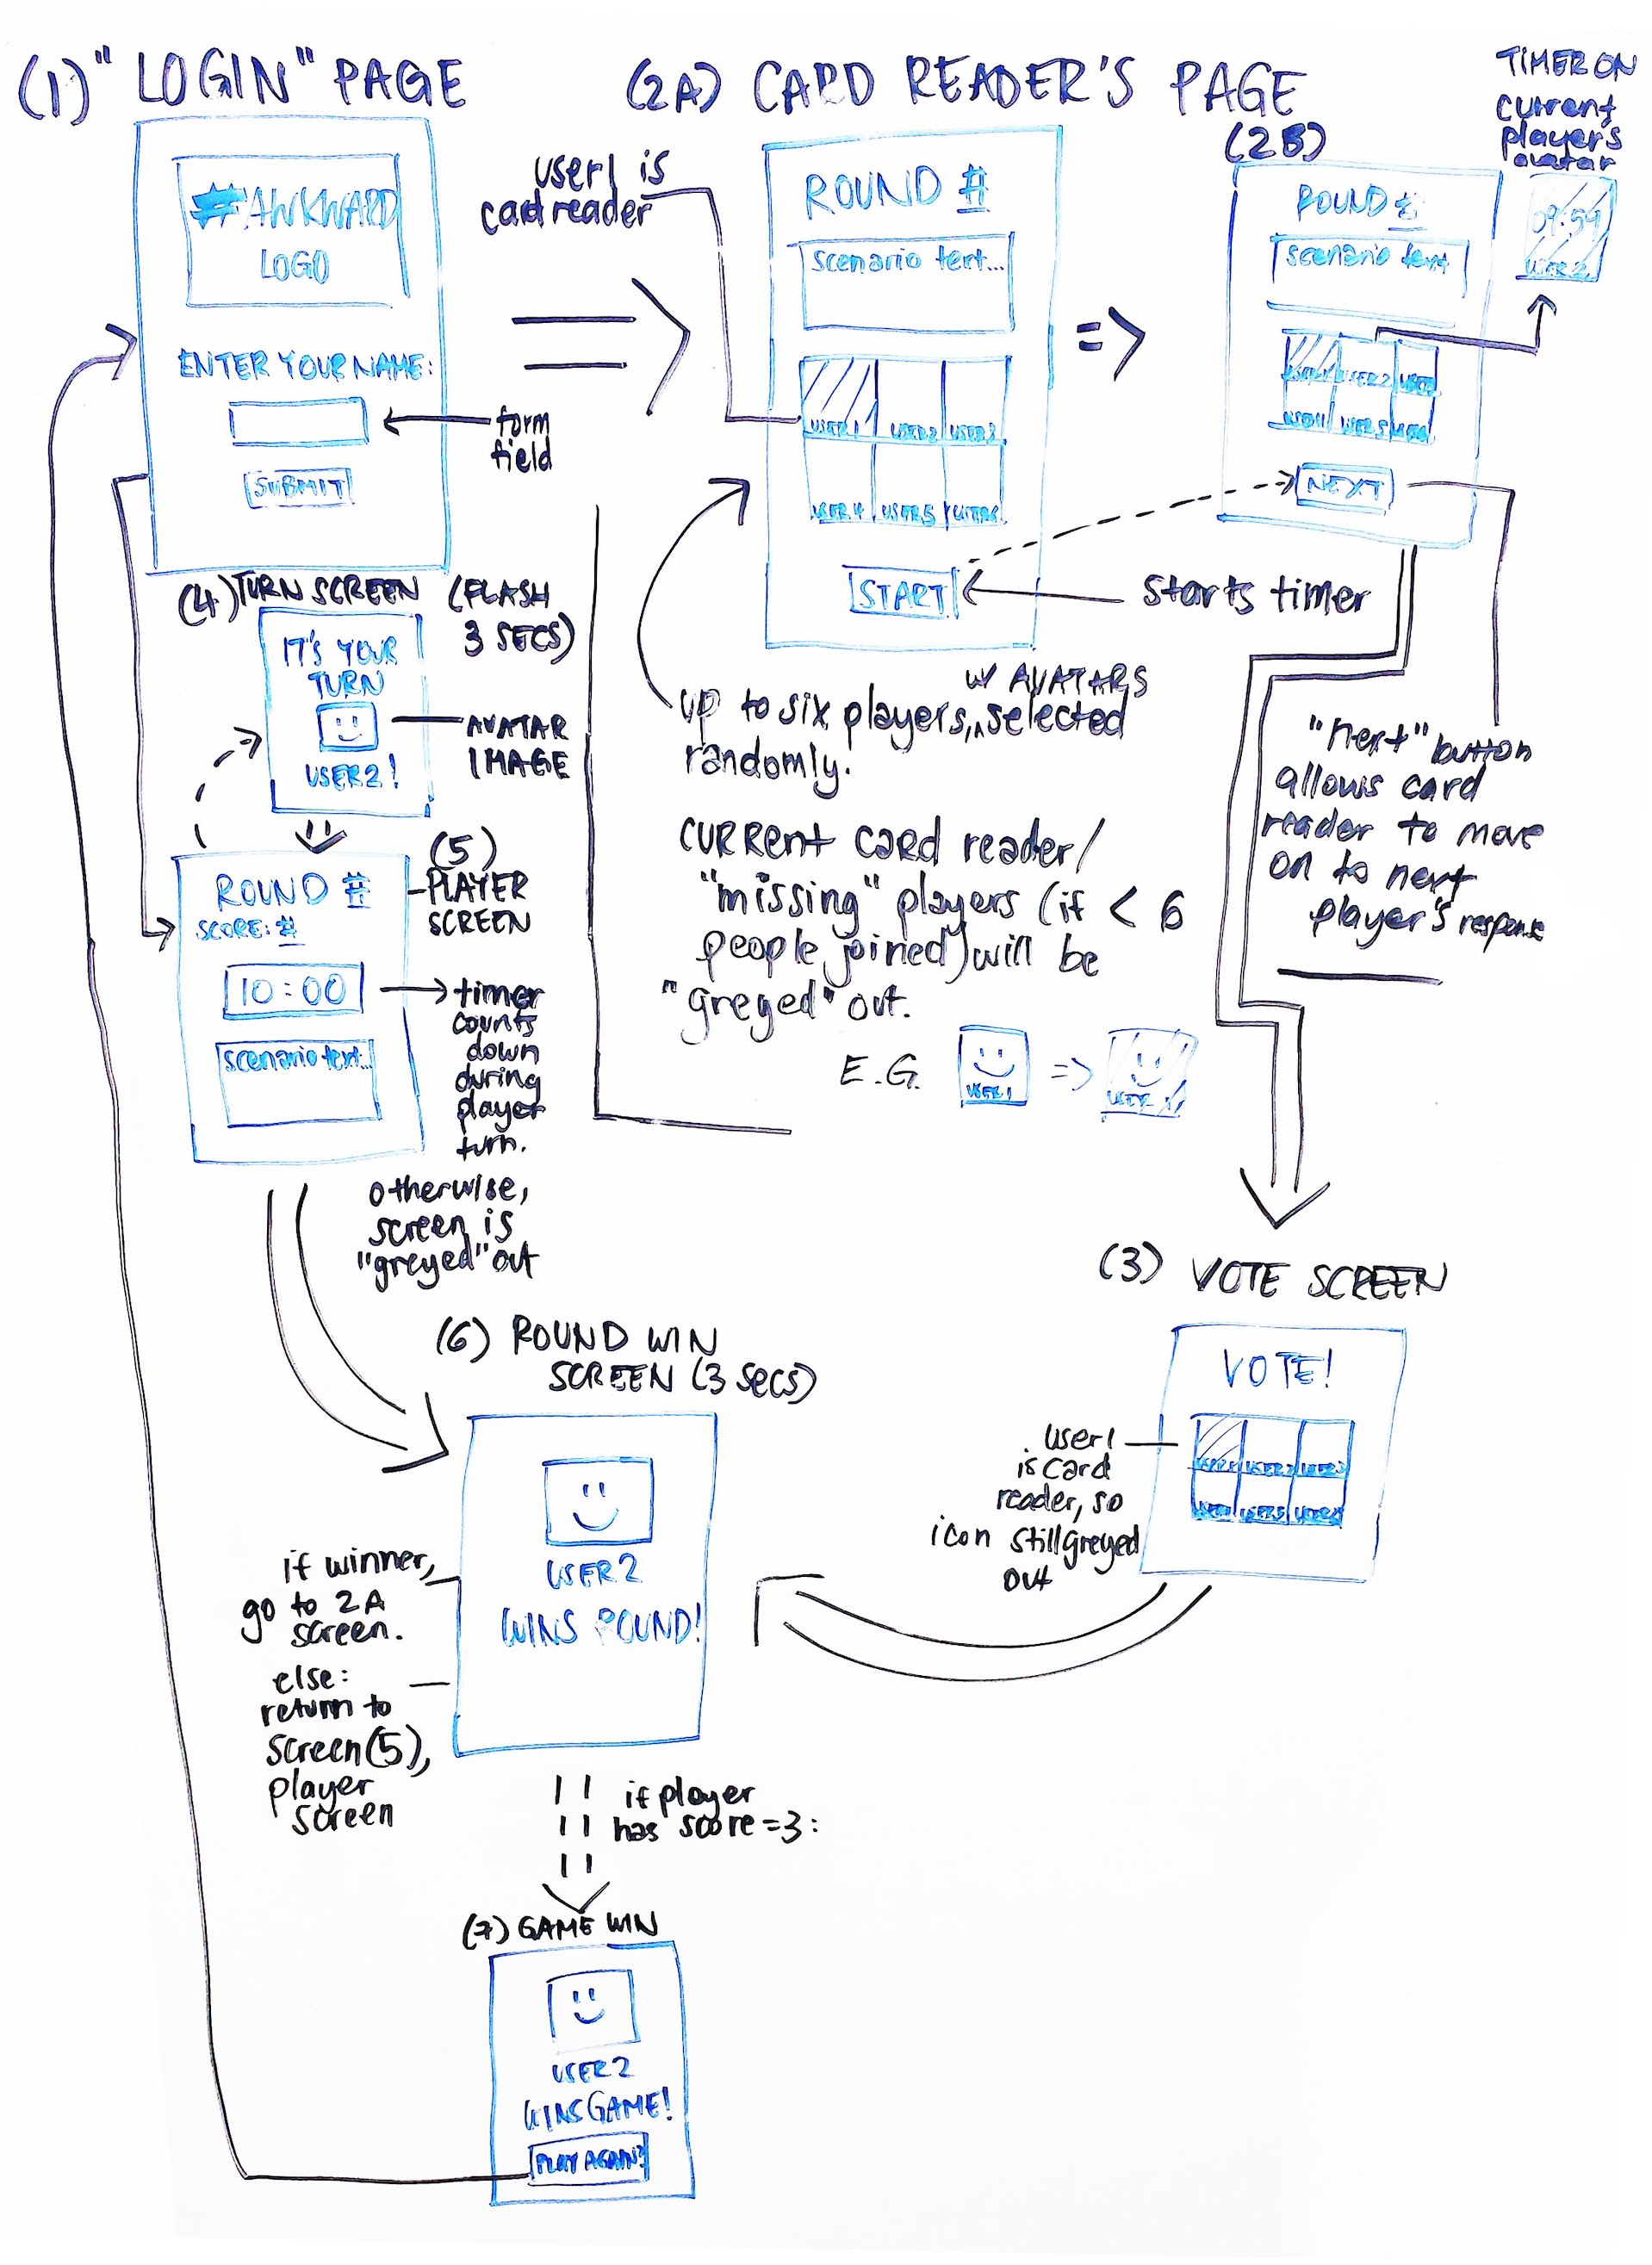 (1) "LOGIN" PAGE
#AWKWARD
LOGO
ENTER YOUR NAME:
SUBMIT
form
field
user1 is
card reader
(2A) CARD READER'S PAGE
ROUND #
scenario text...
USER1 USER2 USER3
USER4 USER5 USER6
START
starts timer
(2B)
ROUND #
scenario text
USER1 USER2 USER3
USER4 USER5 USER6
NEXT
TIMER ON
current
player's
avatar
09:59
USER2
up to six players, w/ AVATARS selected
randomly.
CURRENT CARD reader/
"missing" players (if < 6
people joined) will be
"greyed" out.
E.G.
USER1
=>
USER1
"next" button
allows card
reader to move
on to next
player's response
(4) TURN SCREEN
(FLASH
3 SECS)
IT'S YOUR
TURN
USER2!
AVATAR
IMAGE
(5)
PLAYER
SCREEN
ROUND #
SCORE: #
10:00
scenario text...
timer
counts
down
during
player
turn.
otherwise,
screen is
"greyed" out
(3) VOTE SCREEN
VOTE!
USER1 USER2 USER3
USER4 USER5 USER6
user1
is card
reader, so
icon still greyed
out
(6) ROUND WIN
SCREEN (3 secs)
USER2
WINS ROUND!
if winner,
go to 2A
screen.
else:
return to
screen (5),
player
screen
if player
has score=3:
(7) GAME WIN
USER2
WINS GAME!
PLAY AGAIN?